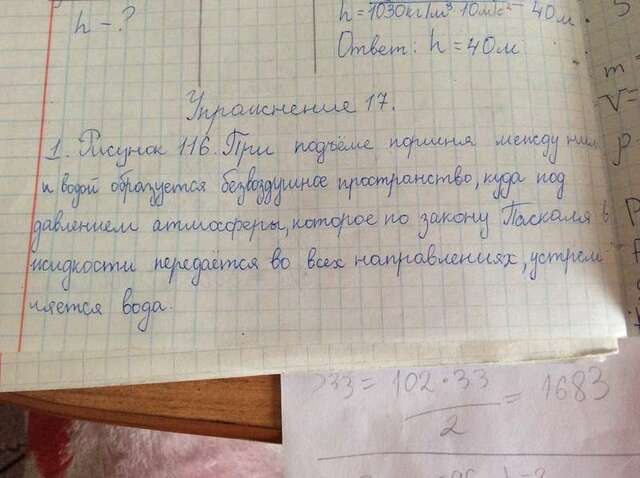 h - ?
h = 1030кг/м³ 10м/с² = 40м.
Ответ: h = 40м
Упражнение 17.
1. Рисунок 116. При подъёме поршня между ним
и водой образуется безвоздушное пространство, куда под
давлением атмосферы, которое по закону Паскаля в
жидкости передаётся во всех направлениях, устрем
ляется вода.
m =
V =
ρ
33 = 102 · 33 / 2 = 1683